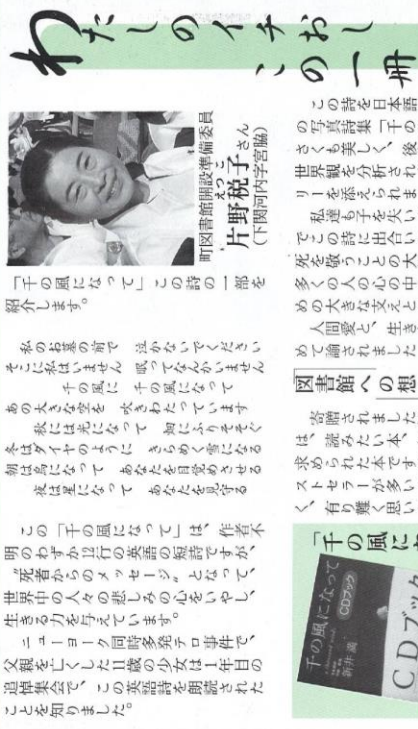 わたしのイチおし
この一冊
町図書館開設準備委員
えつこ
片野税子さん
(下関河内字宮脇)
「千の風になって」この詩の一部を
紹介します。
私のお墓の前で 泣かないでください
そこに私はいません 眠ってなんかいません
千の風に 千の風になって
あの大きな空を 吹きわたっています
秋には光になって 畑にふりそそぐ
冬はダイヤのように きらめく雪になる
朝は鳥になって あなたを目覚めさせる
夜は星になって あなたを見守る
この「千の風になって」は、作者不
明のわずか12行の英語の短詩ですが、
〝死者からのメッセージ〟となって、
世界中の人々の悲しみの心をいやし、
生きる力を与えています。
ニューヨーク同時多発テロ事件で、
父親を亡くした11歳の少女は1年目の
追悼集会で、この英語詩を朗読された
ことを知りました。
この詩を日本語
の写真詩集「千の
さくも美しく、後
世界観を分析され
リーを添えられま
私達も子を失い
でこの詩に出合い
死を敬うことの大
多くの人の心の中
めの大きな支えと
人間愛と、生き
めて諭されました
図書館への想
寄贈されました
は、読みたい本、
求められた本です
ストセラーが多い
く、有り難く思い
「千の風にな
千の風になって
CDブック
新井 満
CDブック